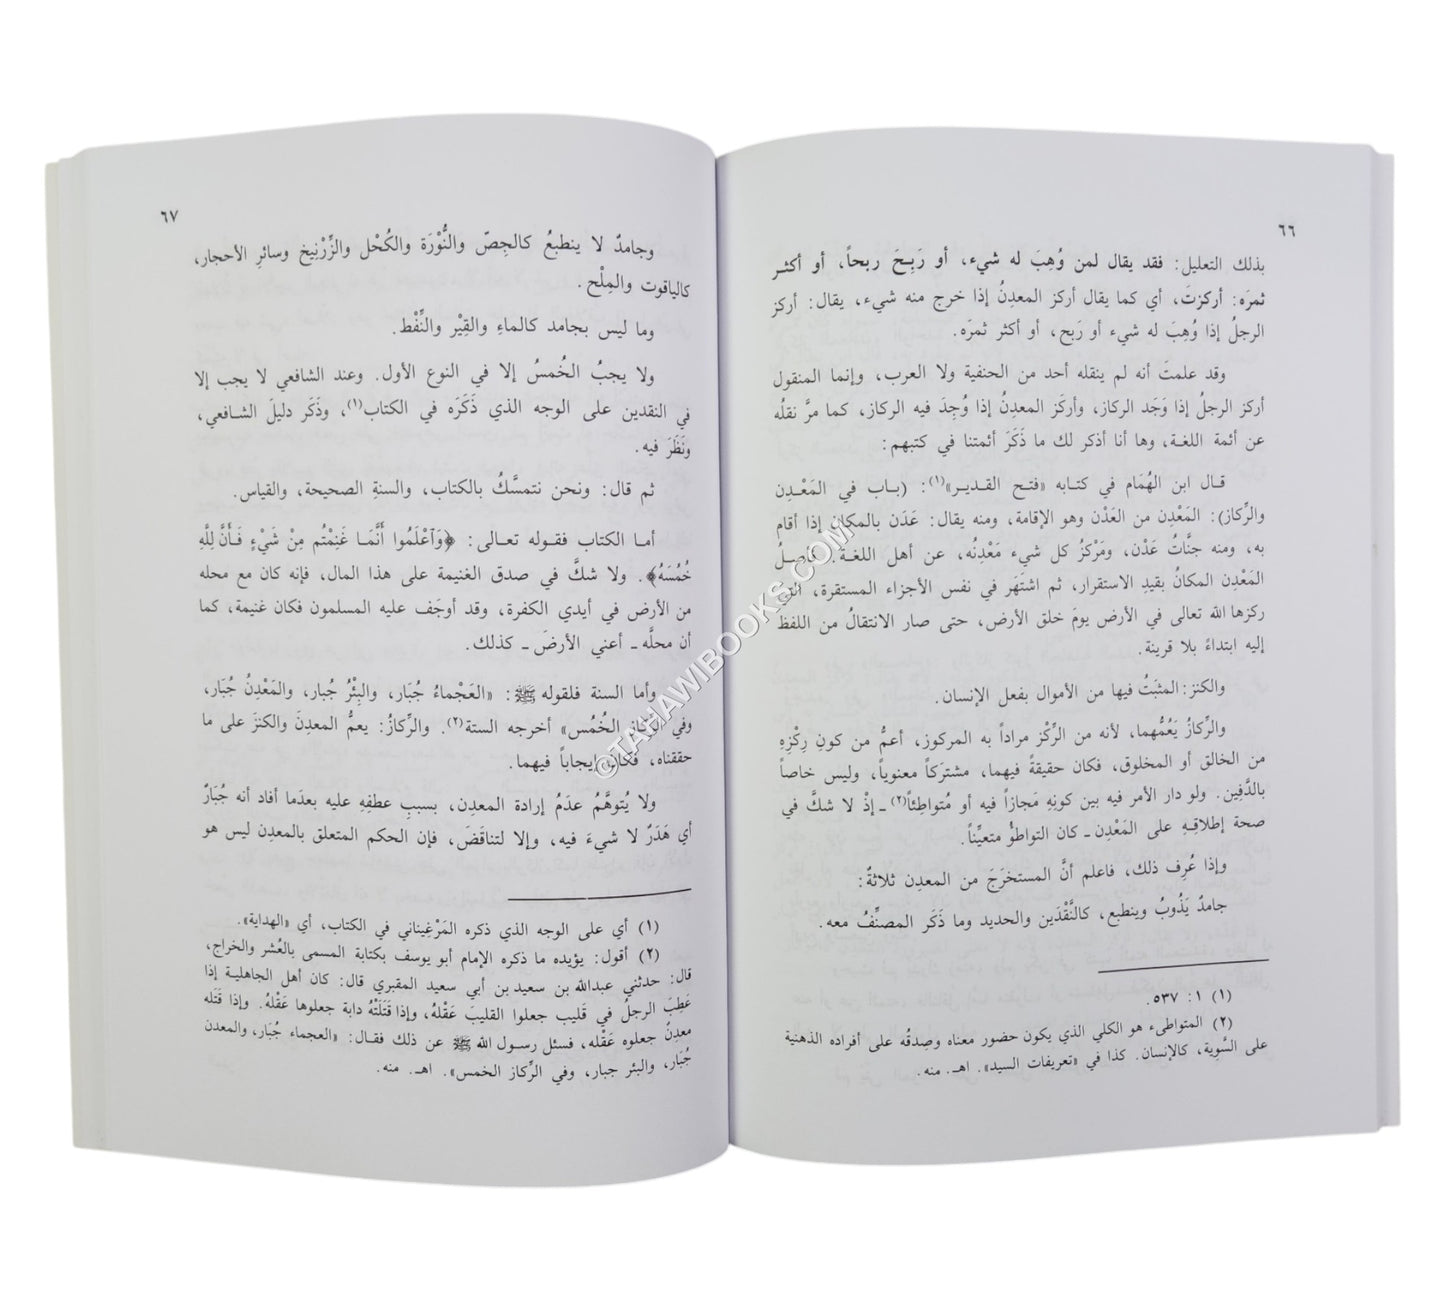 ٦٦
بذلك التعليل: فقد يقال لمن وُهِبَ له شيء، أو رَبِحَ ربحاً، أو أكثر
ثمرَه: أركزتَ، أي كما يقال أركز المعدِنُ إذا خرج منه شيء، يقال: أركز
الرجلُ إذا وُهِبَ له شيء أو رَبح، أو أكثر ثمرَه.
وقد علمتَ أنه لم ينقله أحد من الحنفية ولا العرب، وإنما المنقول
أركز الرجلُ إذا وَجَد الركاز، وأركز المعدِنُ إذا وُجِدَ فيه الركاز، كما مرَّ نقلُه
عن أئمة اللغة، وها أنا أذكر لك ما ذَكَرَ أئمتنا في كتبهم:
قـال ابن الهُمَام في كتابه «فتـح القديـر»(١): (بـاب في المَعْدِن
والرِّكاز): المَعْدِن من العَدْن وهو الإقامة، ومنه يقال: عَدَن بالمكان إذا أقام
به، ومنه جنَّات عَدْن، ومَرْكزُ كل شيء مَعْدِنُه، عن أهل اللغة. فأصلُ
المَعْدِن المكانُ بقيدِ الاستقرار، ثم اشتَهَر في نفس الأجزاء المستقرة، التي
ركزها الله تعالى في الأرض يومَ خلق الأرض، حتى صار الانتقالُ من اللفظ
إليه ابتداءً بلا قرينة.
والكنز: المثبَتُ فيها من الأموال بفعل الإنسان.
والرِّكازُ يَعُمُّهما، لأنه من الرِّكْز مراداً به المركوز، أعمُّ من كونِ رِكْزِهِ
من الخالق أو المخلوق، فكان حقيقةً فيهما، مشترَكاً معنوياً، وليس خاصاً
بالدَّفِين. ولو دار الأمر فيه بين كونِهِ مَجازاً فيه أو مُتواطِئاً(٢) ـ إذْ لا شكَّ في
صحة إطلاقـهِ على المَعْدِن ـ كان التواطؤُ متعيِّناً.
وإذا عُرِف ذلك، فاعلم أنَّ المستخرَجَ من المعدِن ثلاثةٌ:
جامدٌ يَذُوبُ وينطبع، كالنَّقْدَين والحديد وما ذَكَر المصنِّفُ معه.
(١) ١: ٥٣٧.
(٢) المتواطىء هو الكلي الذي يكون حضور معناه وصِدقُه على أفراده الذهنية
على السَّوية، كالإنسان. كذا في «تعريفات السيد». اهـ. منه.
٦٧
وجامدٌ لا ينطبعُ كالجِصّ والنُّوْرَة والكُحْل والزِّرْنِيخ وسائرِ الأحجار،
كالياقوت والمِلْح.
وما ليس بجامد كالماءِ والقِيْر والنِّفْط.
ولا يجبُ الخُمسُ إلا في النوع الأول. وعند الشافعي لا يجب إلا
في النقدين على الوجه الذي ذَكَرَه في الكتاب(١)، وذَكَر دليلَ الشـافعي،
ونَظَرَ فيه.
ثم قال: ونحن نتمسَّكُ بالكتاب، والسنةِ الصحيحة، والقياس.
أمـا الكتاب فقـوله تعـالى: ﴿وَاَعْلَمُوا أَنَّمَـا غَنِمْتُم مِنْ شَيْءٍ فَـأَنَّ لِلَّهِ
خُمُسَهُ﴾. ولا شكَّ في صدق الغنيمة على هذا المال، فإنه كان مع محله
من الأرض في أيدي الكفرة، وقد أوجَف عليه المسلمون فكان غنيمة، كما
أن محلَّه ـ أعني الأرضَ ـ كذلك.
وأما السنة فلقوله ﷺ: «العَجْماءُ جُبَار، والبِئْرُ جُبار، والمَعْدنُ جُبَار،
وفي الرِّكاز الخُمُس» أخرجه الستة(٢). والرِّكازُ: يعمُّ المعدِنَ والكنزَ على ما
حققناه، فكان إيجاباً فيهما.
ولا يُتوهَّمُ عدَمُ إرادة المعدِن، بسببِ عطفِهِ عليه بعدَما أفاد أنه جُبَارٌ
أي هَدَرٌ لا شيءَ فيه، وإلا لتناقَضَ، فإن الحكم المتعلق بالمعدِن ليس هو
(١) أي على الوجه الذي ذكره المَرْغِيناني في الكتاب، أي «الهداية».
(٢) أقول: يؤيده ما ذكره الإمام أبو يوسف بكتابة المسمى بالعُشر والخراج،
قال: حدثني عبدالله بن سعيد بن أبي سعيد المقبري قال: كان أهل الجاهلية إذا
عَطِبَ الرجلُ في قَليب جعلوا القليبَ عَقْلَهُ، وإذا قَتَلَتْهُ دابة جعلوها عَقْلهُ. وإذا قَتَله
معدِنٌ جعلوه عَقْله، فسئل رسول الله ﷺ عن ذلك فقـال: «العجماء جُبَار، والمعدن
جُبَار، والبئر جبار، وفي الرِّكاز الخمس». اهـ. منه.
©TAHAWIBOOKS.COM